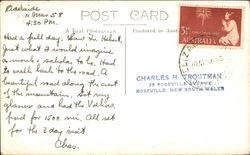 Adelaide
11 Mar 58
4:30 PM.
POST CARD
A Real Photograph
Produced in Australia
Had a full day. Saw
Just what I would imagine
a monk & scholar to be. Had
to walk back to the road. A
beautiful road along the crest
of the mountain. Got my
glasses and had the Valises
fixed for 1500 mi. All set
for the 2 day visit
Chas.
5½D
AUSTRALIA
CHARLES H. TROUTMAN
25 ROSEVILLE AVENUE
ROSEVILLE NEW SOUTH WALES